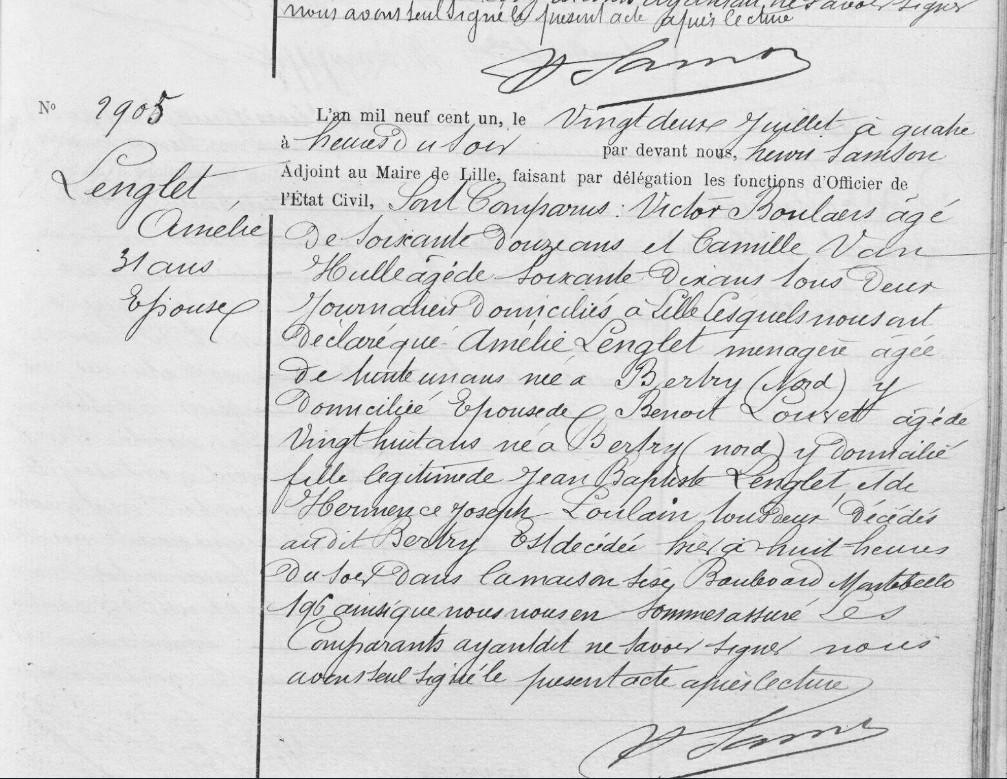 nous avons seul signé le présent acte après lecture
H Samson
N° 2905
Lenglet
Amélie
31 ans
Epouse
L'an mil neuf cent un, le Vingt deux Juillet à quatre
à heures du Soir par devant nous, henri Samson
Adjoint au Maire de Lille, faisant par délégation les fonctions d'Officier de
l'État Civil, Sont Comparus : Victor Boulaers âgé
De Soixante Douze ans et Camille Van
Hulle âgé de Soixante Dix ans tous Deux
Journaliers Domiciliés à Lille Lesquels nous ont
Déclaré que Amélie Lenglet menagère âgée
De trente un ans née à Bertry (Nord) y
Domiciliée Epouse de Benoit Louvett âgé de
Vingt huit ans né à Bertry (nord) y Domicilié
fille legitime de Jean Baptiste Lenglet, et de
Hermence Joseph Loulain tous Deux Décédés
audit Bertry Est décédée hier à huit heures
Du Soir Dans la maison sise Boulevard Montebello
196 ainsi que nous nous en Sommes assuré Les
Comparants ayant dit ne Savoir signer nous
avons seul signé le présent acte après lecture
H Samson